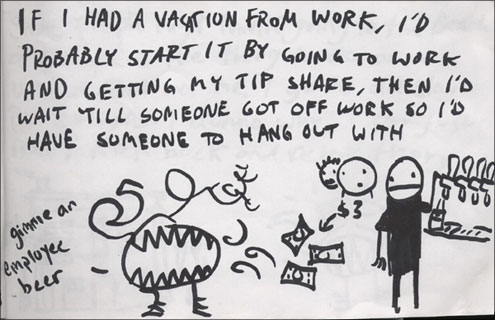 IF I HAD A VACATION FROM WORK, I'D
PROBABLY START IT BY GOING TO WORK
AND GETTING MY TIP SHARE, THEN I'D
WAIT TILL SOMEONE GOT OFF WORK SO I'D
HAVE SOMEONE TO HANG OUT WITH
$3
gimme an
employee
beer